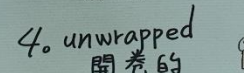 4. unwrapped
開卷的